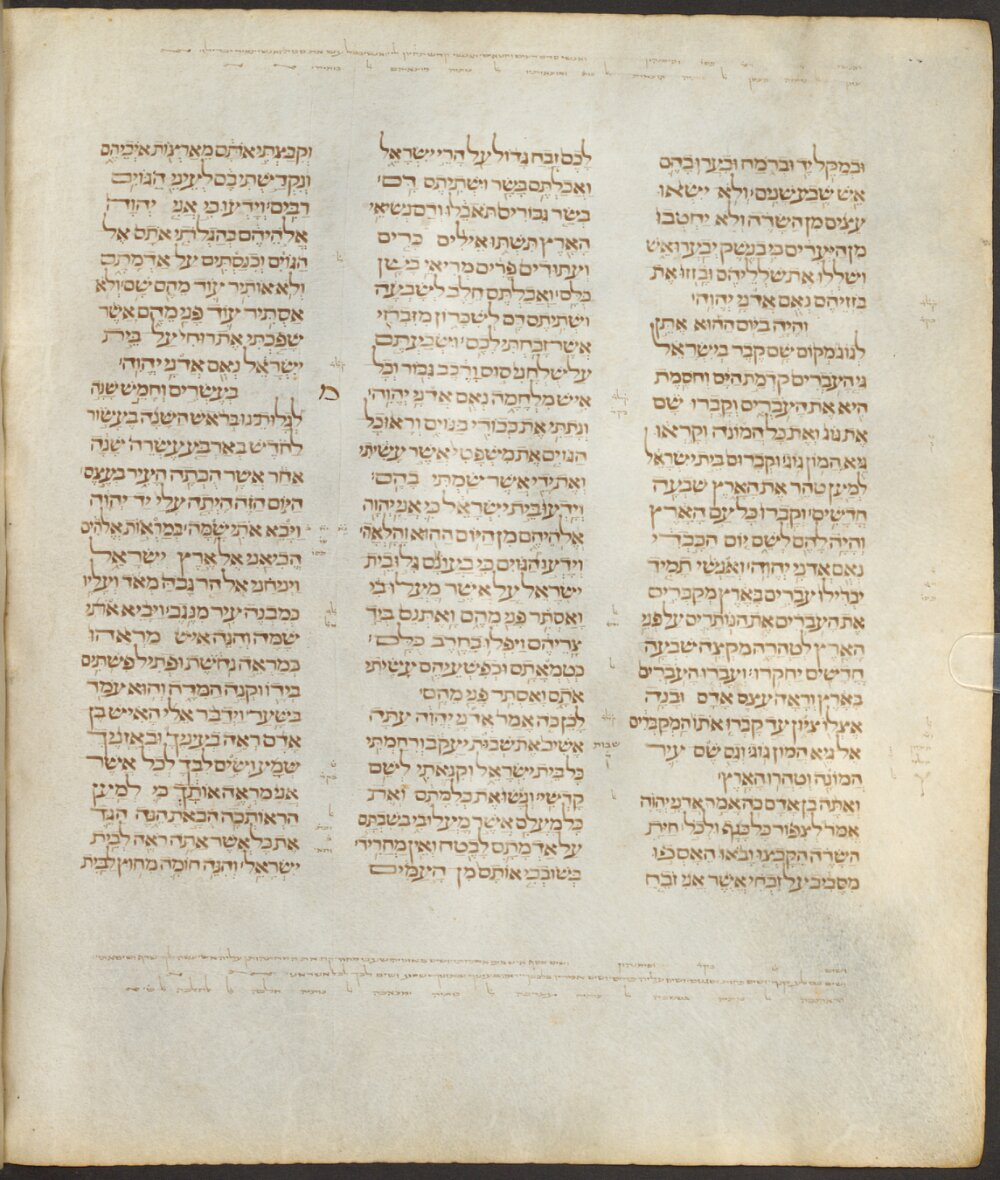 ובמקל יד וברמח ובערו בהם
אש שבע שנים ולא ישאו
עצים מן השדה ולא יחטבו
מן היערים כי בנשק יבערו אש
ושללו את שלליהם ובזזו את
בזזיהם נאם אדני יהוה
והיה ביום ההוא אתן
לגוג מקום שם קבר בישראל
גי העברים קדמת הים וחסמת
היא את העברים וקברו שם
את גוג ואת כל המונה וקראו
גיא המון גוג וקברום בית ישראל
למען טהר את הארץ שבעה
חדשים וקברו כל עם הארץ
והיה להם לשם יום הכבדי
נאם אדני יהוה ואנשי תמיד
יבדילו עברים בארץ מקברים
את העברים את הנותרים על פני
הארץ לטהרה מקצה שבעה
חדשים יחקרו ועברו העברים
בארץ וראה עצם אדם ובנה
אצלו ציון עד קברו אתו המקברים
אל גיא המון גוג וגם שם עיר
המונה וטהרו הארץ
ואתה בן אדם כה אמר אדני יהוה
אמר לצפור כל כנף ולכל חית
השדה הקבצו ובאו האספו
מסביב על זבחי אשר אני זבח
לכם זבח גדול על הרי ישראל
ואכלתם בשר ושתיתם דם
בשר גבורים תאכלו ודם נשיאי
הארץ תשתו אילים כרים
ועתודים פרים מריאי בשן
כלם ואכלתם חלב לשבעה
ושתיתם דם לשכרון מזבחי
אשר זבחתי לכם ושבעתם
על שלחני סוס ורכב גבור וכל
איש מלחמה נאם אדני יהוה
ונתתי את כבודי בגוים וראו כל
הגוים את משפטי אשר עשיתי
ואת ידי אשר שמתי בהם
וידעו בית ישראל כי אני יהוה
אלהיהם מן היום ההוא והלאה
וידעו הגוים כי בעונם גלו בית
ישראל על אשר מעלו בי
ואסתר פני מהם ואתנם ביד
צריהם ויפלו בחרב כלם
כטמאתם וכפשעיהם עשיתי
אתם ואסתר פני מהם
לכן כה אמר אדני יהוה עתה
אשיב את שבות יעקב ורחמתי
כל בית ישראל וקנאתי לשם
קדשי ונשו את כלמתם ואת
כל מעלם אשר מעלו בי בשבתם
על אדמתם לבטח ואין מחריד
בשובבי אותם מן העמים
וקבצתי אותם מארצות איביהם
ונקדשתי בם לעיני הגוים
רבים וידעו כי אני יהוה
אלהיהם בהגלותי אתם אל
הגוים וכנסתים על אדמתם
ולא אותיר עוד מהם שם ולא
אסתיר עוד פני מהם אשר
שפכתי את רוחי על בית
ישראל נאם אדני יהוה
בעשרים וחמש שנה
לגלותנו בראש השנה בעשור
לחדש בארבע עשרה שנה
אחר אשר הכתה העיר בעצם
היום הזה היתה עלי יד יהוה
ויבא אתי שמה במראות אלהים
הביאני אל ארץ ישראל
ויניחני אל הר גבה מאד ועליו
כמבנה עיר מנגב ויביא אותי
שמה והנה איש מראהו
כמראה נחשת ופתיל פשתים
בידו וקנה המדה והוא עמד
בשער וידבר אלי האיש בן
אדם ראה בעיניך ובאזניך
שמע ושים לבך לכל אשר
אני מראה אותך כי למען
הראותכה הבאתה הנה הגד
את כל אשר אתה ראה לבית
ישראל והנה חומה מחוץ לבית